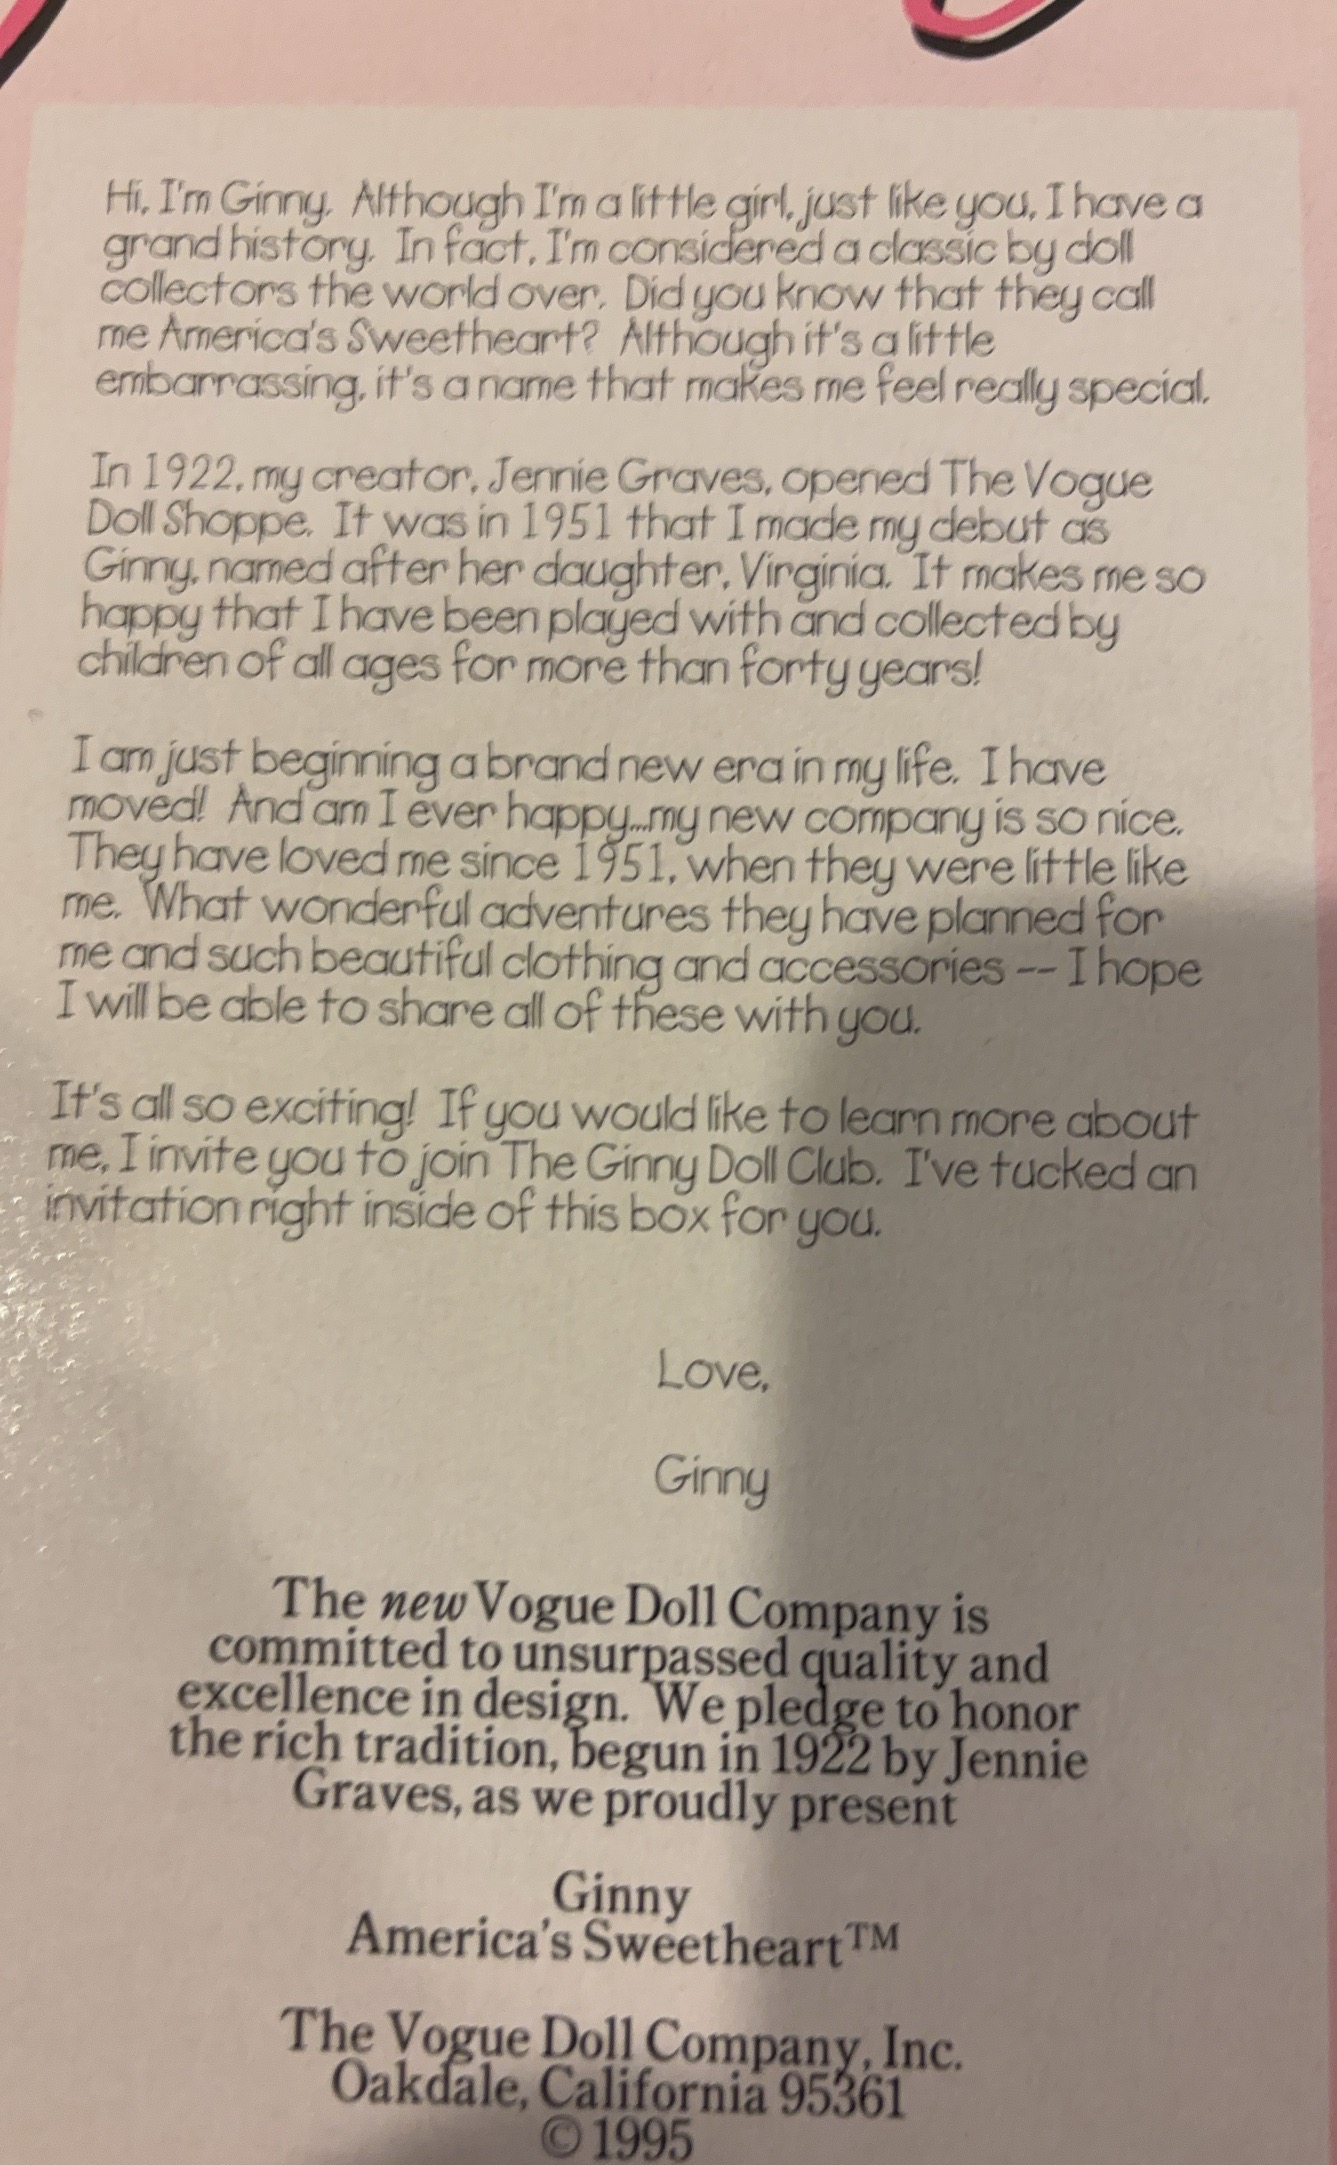 Hi, I'm Ginny. Although I'm a little girl, just like you, I have a
grand history. In fact, I'm considered a classic by doll
collectors the world over. Did you know that they call
me America's Sweetheart? Although it's a little
embarrassing, it's a name that makes me feel really special.
In 1922, my creator, Jennie Graves, opened The Vogue
Doll Shoppe. It was in 1951 that I made my debut as
Ginny, named after her daughter, Virginia. It makes me so
happy that I have been played with and collected by
children of all ages for more than forty years!
I am just beginning a brand new era in my life. I have
moved! And am I ever happy...my new company is so nice.
They have loved me since 1951, when they were little like
me. What wonderful adventures they have planned for
me and such beautiful clothing and accessories -- I hope
I will be able to share all of these with you.
It's all so exciting! If you would like to learn more about
me, I invite you to join The Ginny Doll Club. I've tucked an
invitation right inside of this box for you.
Love,
Ginny
The new Vogue Doll Company is
committed to unsurpassed quality and
excellence in design. We pledge to honor
the rich tradition, begun in 1922 by Jennie
Graves, as we proudly present
Ginny
America's Sweetheart™
The Vogue Doll Company, Inc.
Oakdale, California 95361
© 1995